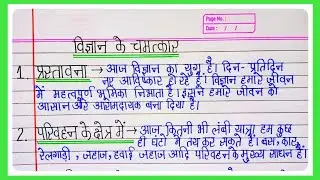 Page No.:
Date: / /
विज्ञान के चमत्कार
1. प्रस्तावना → आज विज्ञान का युग है। दिन-प्रतिदिन
नए आविष्कार हो रहे हैं। विज्ञान हमारे जीवन
में महत्वपूर्ण भूमिका निभाता है। इसने हमारे जीवन को
आसान और आरामदायक बना दिया है।
2. परिवहन के क्षेत्र में → आज कितनी भी लंबी यात्रा हम कुछ
ही घंटों में तय कर सकते हैं। बस, कार,
रेलगाड़ी, जहाज, हवाई जहाज आदि परिवहन के मुख्य साधन हैं।